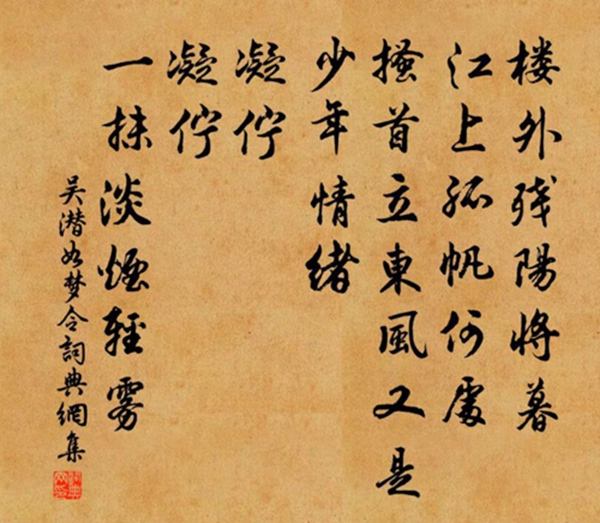 楼外残陽将暮
江上孤帆何處
搔首立東風又是
少年情緒
凝佇
凝佇
一抹淡煙輕雾
吴潜如梦令詞典網集